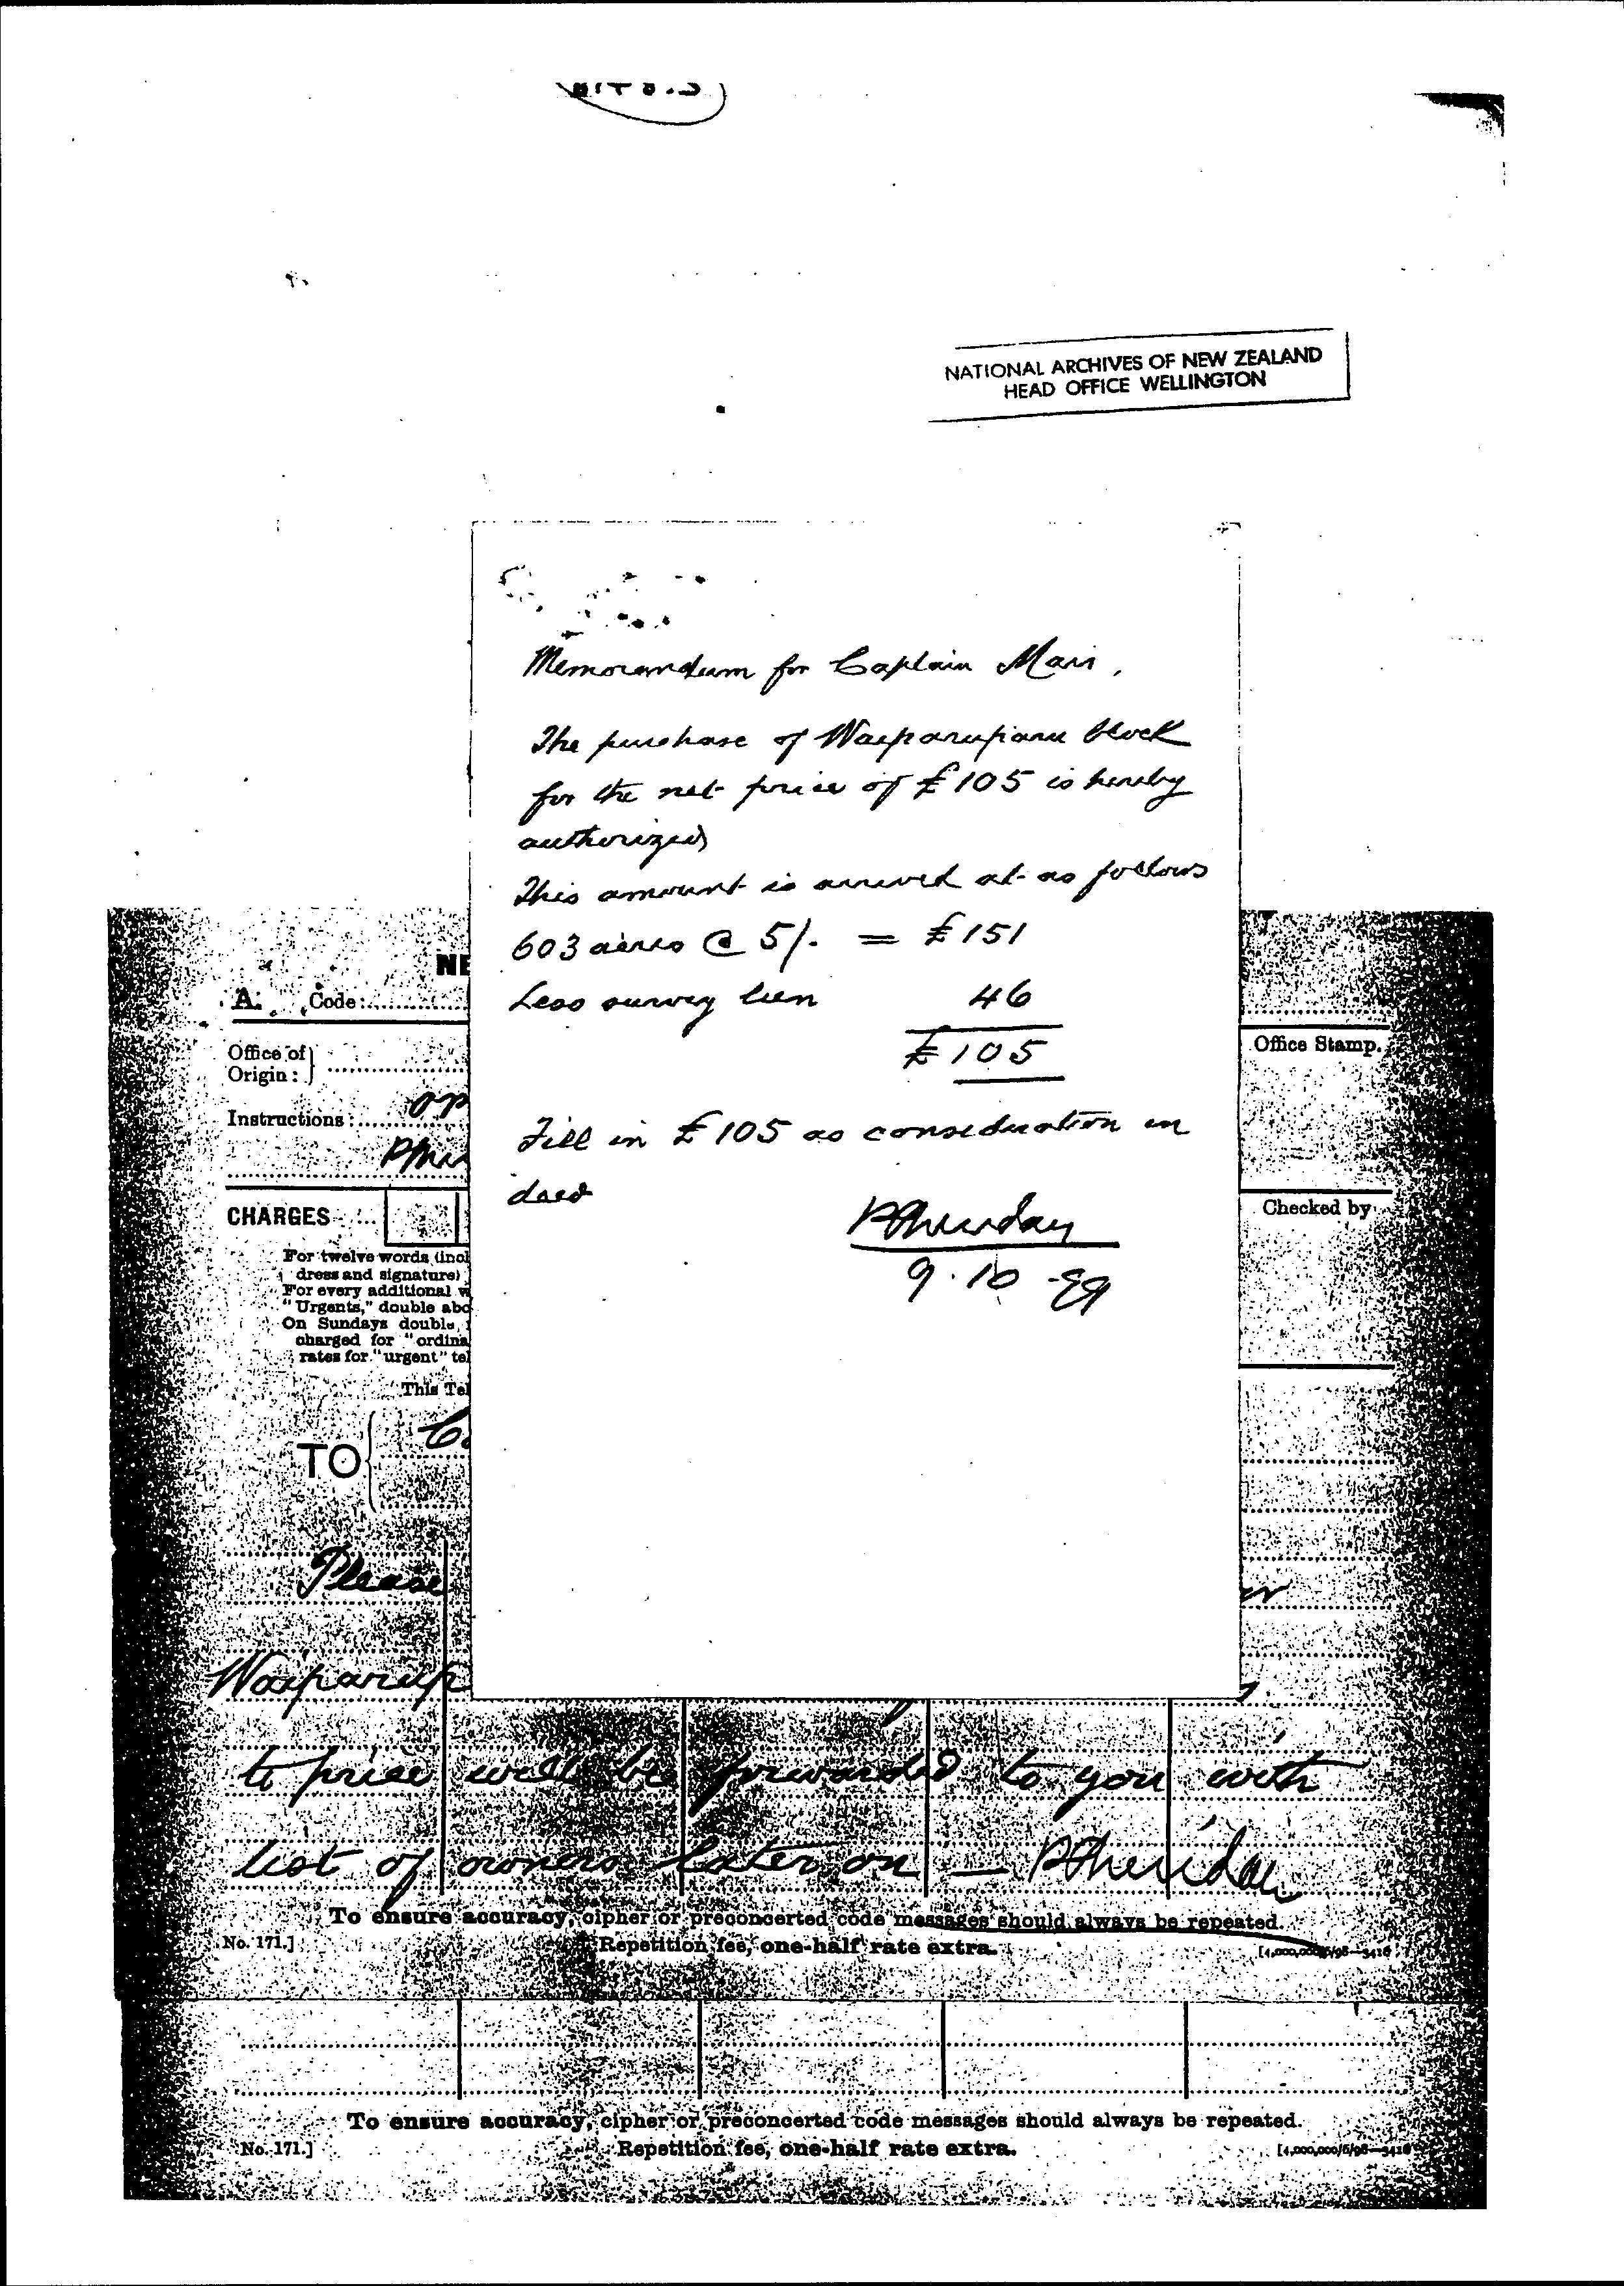 NATIONAL ARCHIVES OF NEW ZEALAND
HEAD OFFICE WELLINGTON
Memorandum for Captain Mair.
The purchase of Waeparupiaru block
for the net price of £105 is hereby
authorized
This amount is arrived at as follows
603 acres @ 5/. = £151
Less survey lien 46
£105
Fill in £105 as consideration in
deed
PSheridan
9.10.99
NE
A. Code:
Office of
Origin:
Office Stamp.
Instructions:
CHARGES
Checked by
For twelve words (incl
dress and signature)
For every additional w
"Urgents," double abo
On Sundays double,
charged for "ordina
rates for "urgent" tel
This Tel
TO
Please
Waeparup
to price will be forwarded to you with
list of owners later on — PSheridan
To ensure accuracy, cipher or preconcerted code messages should always be repeated.
No. 171.] Repetition fee, one-half rate extra. [4,000,000/5/98—3416
To ensure accuracy, cipher or preconcerted code messages should always be repeated.
No. 171.] Repetition fee, one-half rate extra. [4,000,000/5/98—3416